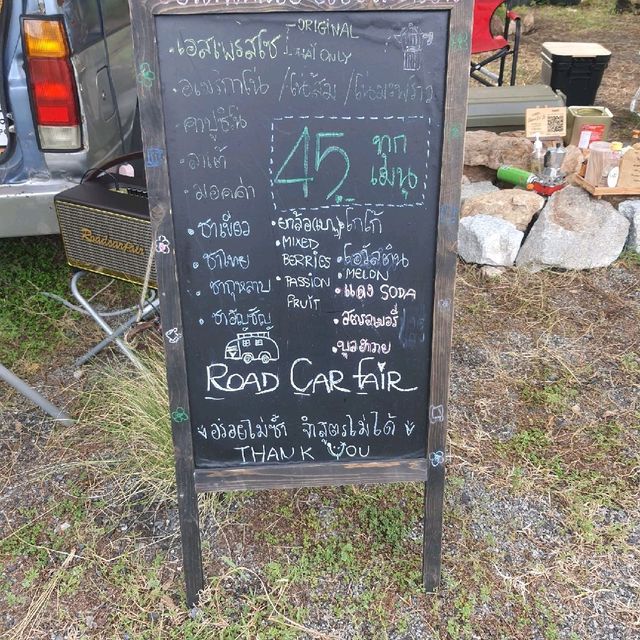 เอสเพรสโซ่
ORIGINAL
THAI ONLY
อเมริกาโน่ /น้ำส้ม /น้ำมะพร้าว
คาปูชิโน
ลาเต้
มอคค่า
45.-
ทุก
เมนู
ชาเขียว
ชาไทย
ชากุหลาบ
ชาอัญชัญ
MIXED
BERRIES
PASSION
FRUIT
โกโก้
โอวัลติน
MELON
แดง SODA
สตรอเบอรี่
บูลฮาวาย
ROAD CAR FAIR
อร่อยไม่ซ้ำ จำสูตรไม่ได้
THANK YOU
Roadcarfair